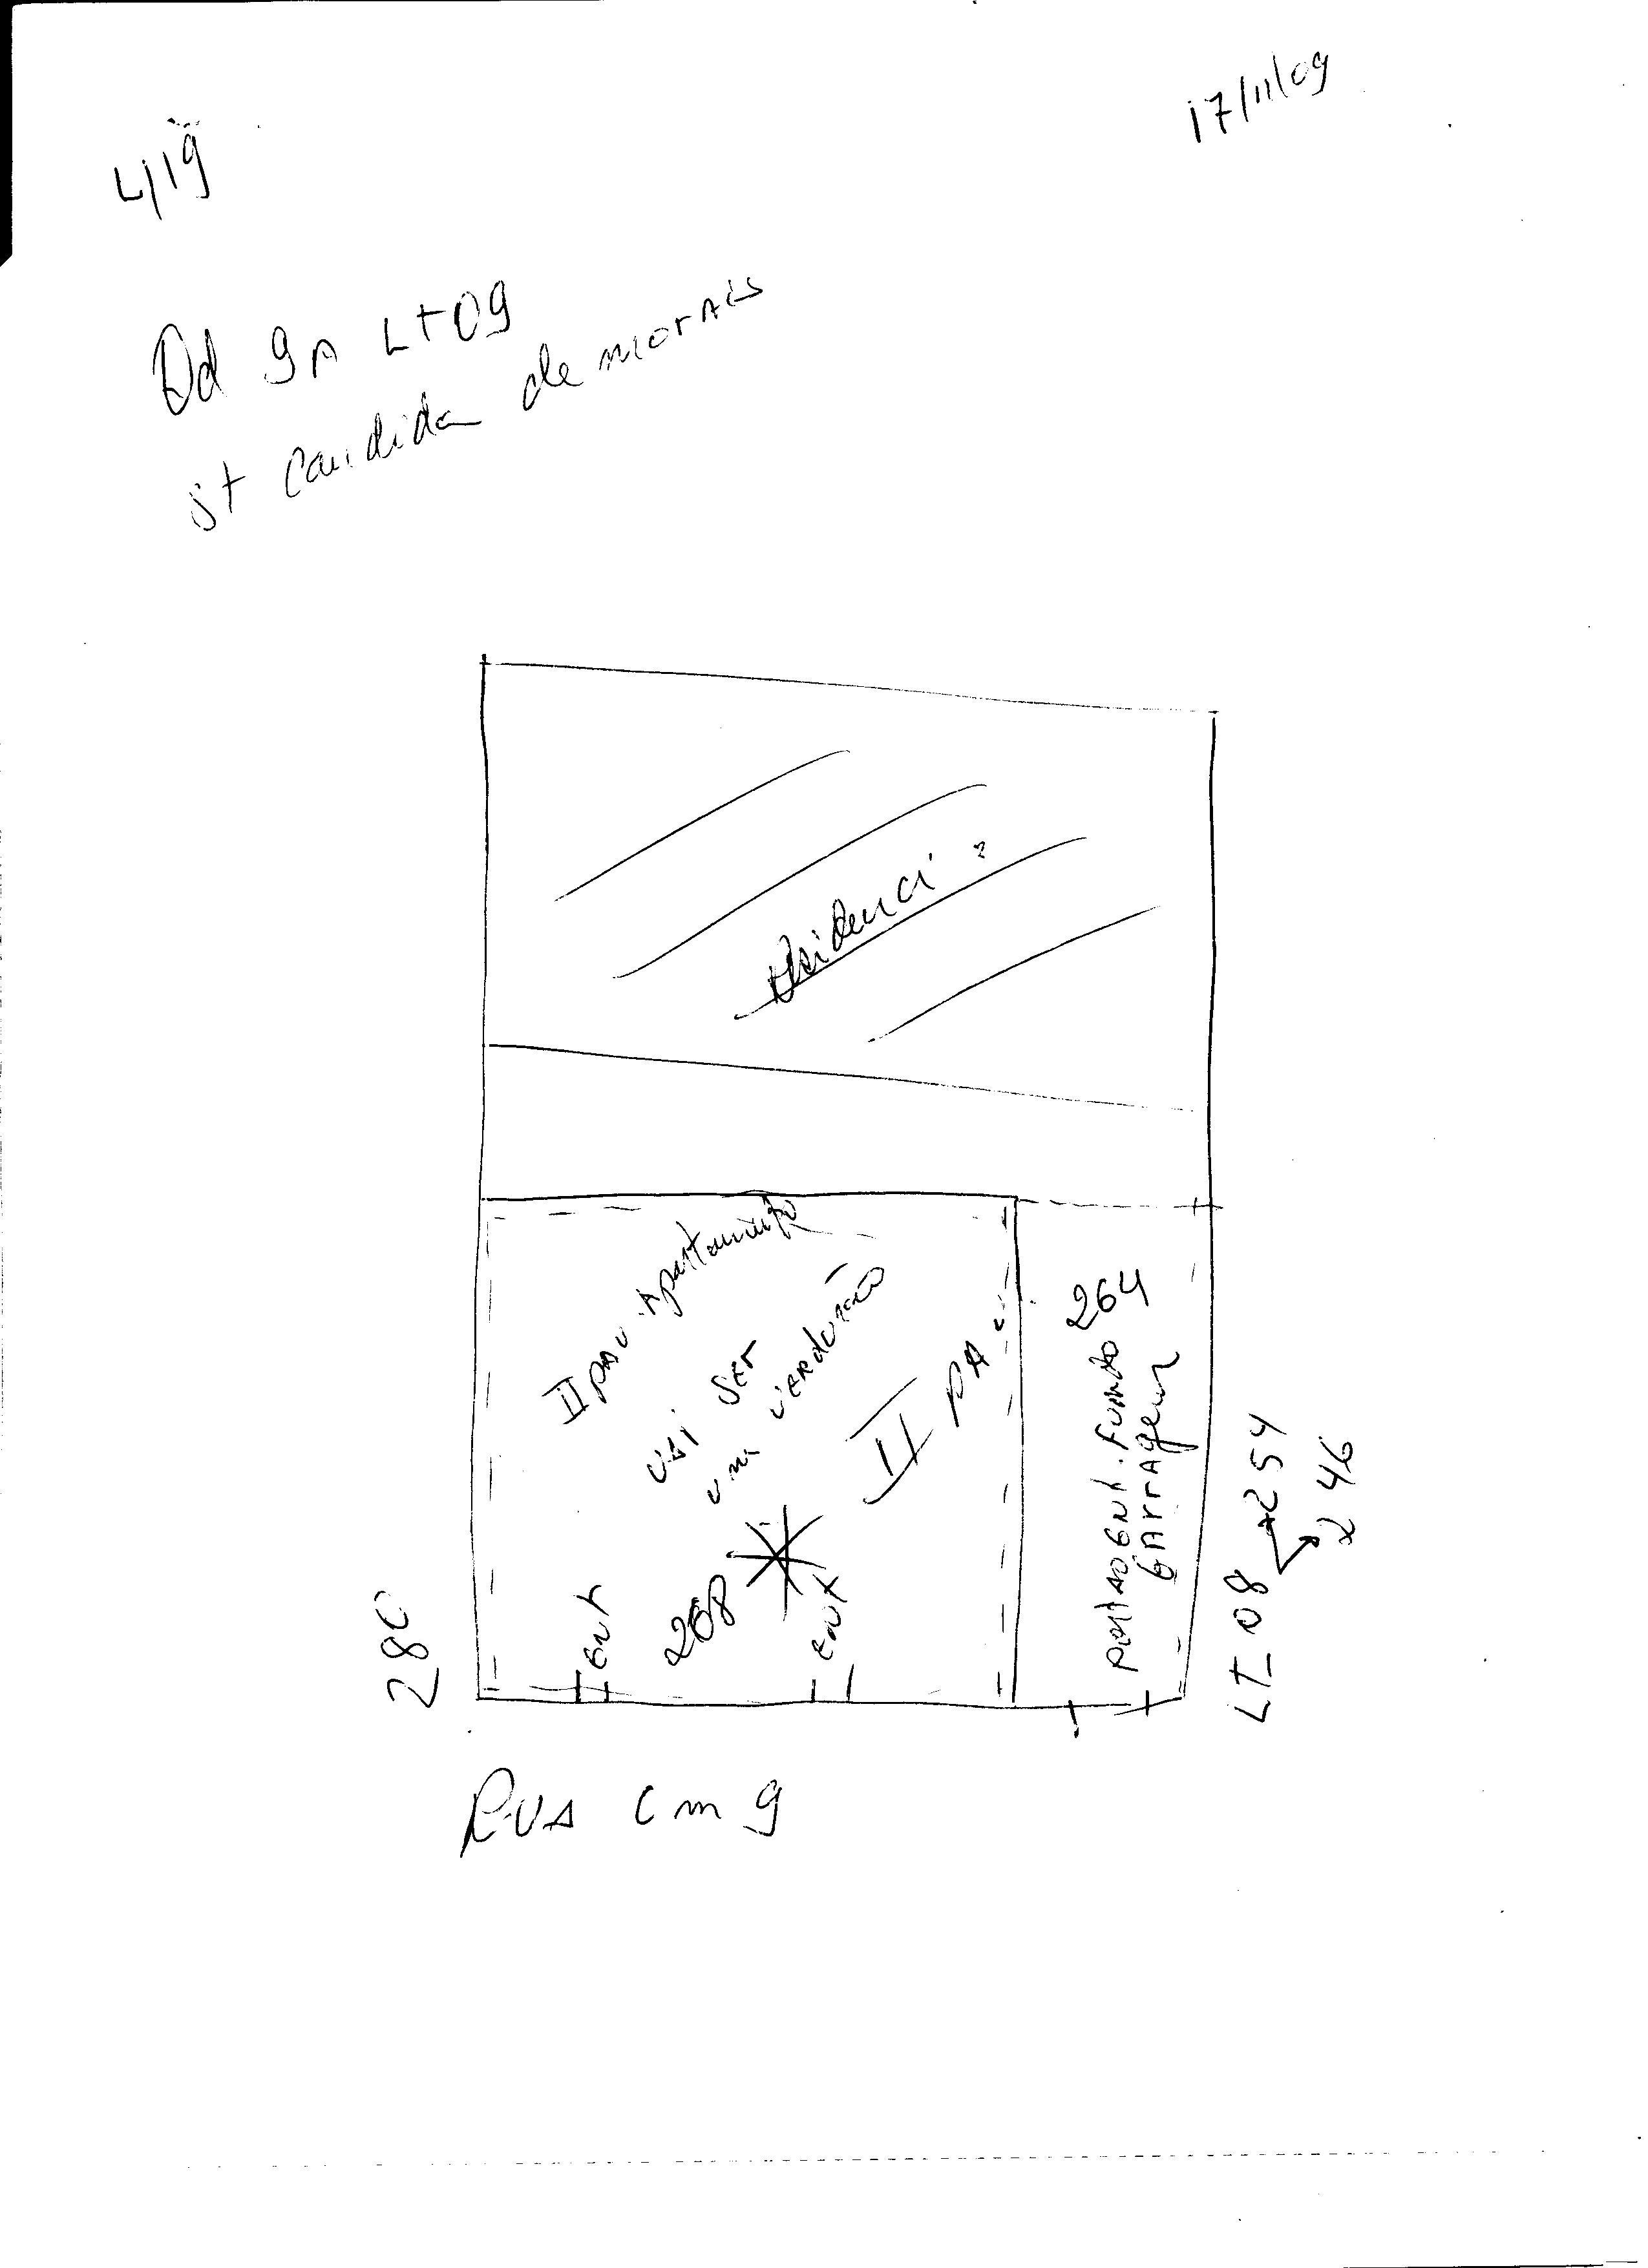 17/11/09
4/19
Qd 9A LT09
st candida de morais
Residenci
II pav Apartamento
vai ser
uma verdurão
II PA
264
portao ent. Fundo
GArrAgem
ent
268
ent
280
LT_08 254
246
RUA cm 9